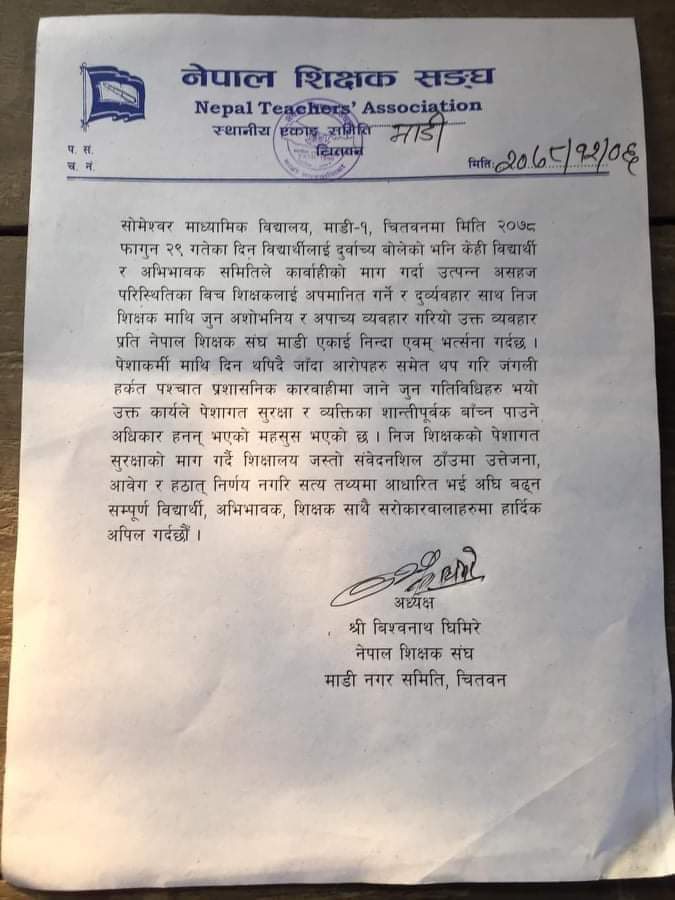 नेपाल शिक्षक सङ्घ
Nepal Teachers' Association
स्थानीय एकाइ समिति माडी
चितवन
प. स.
च. नं.
मिति: २०७८/१२/०६
सोमेश्वर माध्यामिक विद्यालय, माडी-१, चितवनमा मिति २०७८
फागुन २९ गतेका दिन विद्यार्थीलाई दुर्वाच्य बोलेको भनि केही विद्यार्थी
र अभिभावक समितिले कार्वाहीको माग गर्दा उत्पन्न असहज
परिस्थितिका विच शिक्षकलाई अपमानित गर्ने र दुर्व्यवहार साथ निज
शिक्षक माथि जुन अशोभनिय र अपाच्य व्यवहार गरियो उक्त व्यवहार
प्रति नेपाल शिक्षक संघ माडी एकाई निन्दा एवम् भर्त्सना गर्दछ ।
पेशाकर्मी माथि दिन थपिदै जाँदा आरोपहरु समेत थप गरि जंगली
हर्कत पश्चात प्रशासनिक कारवाहीमा जाने जुन गतिविधिहरु भयो
उक्त कार्यले पेशागत सुरक्षा र व्यक्तिका शान्तीपूर्वक बाँच्न पाउने
अधिकार हनन् भएको महसुस भएको छ । निज शिक्षकको पेशागत
सुरक्षाको माग गर्दै शिक्षालय जस्तो संवेदनशिल ठाँउमा उत्तेजना,
आवेग र हठात् निर्णय नगरि सत्य तथ्यमा आधारित भई अघि बढ्न
सम्पूर्ण विद्यार्थी, अभिभावक, शिक्षक साथै सरोकारवालाहरुमा हार्दिक
अपिल गर्दछौं ।
अध्यक्ष
श्री बिश्वनाथ घिमिरे
नेपाल शिक्षक संघ
माडी नगर समिति, चितवन